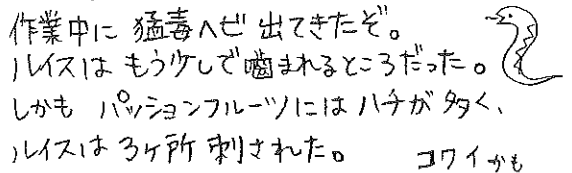 作業中に 猛毒ヘビ 出てきたぞ。
ルイスは もう少しで噛まれるところだった。
しかも パッションフルーツには ハチが 多く、
ルイスは 3ヶ所 刺された。
コワイかも